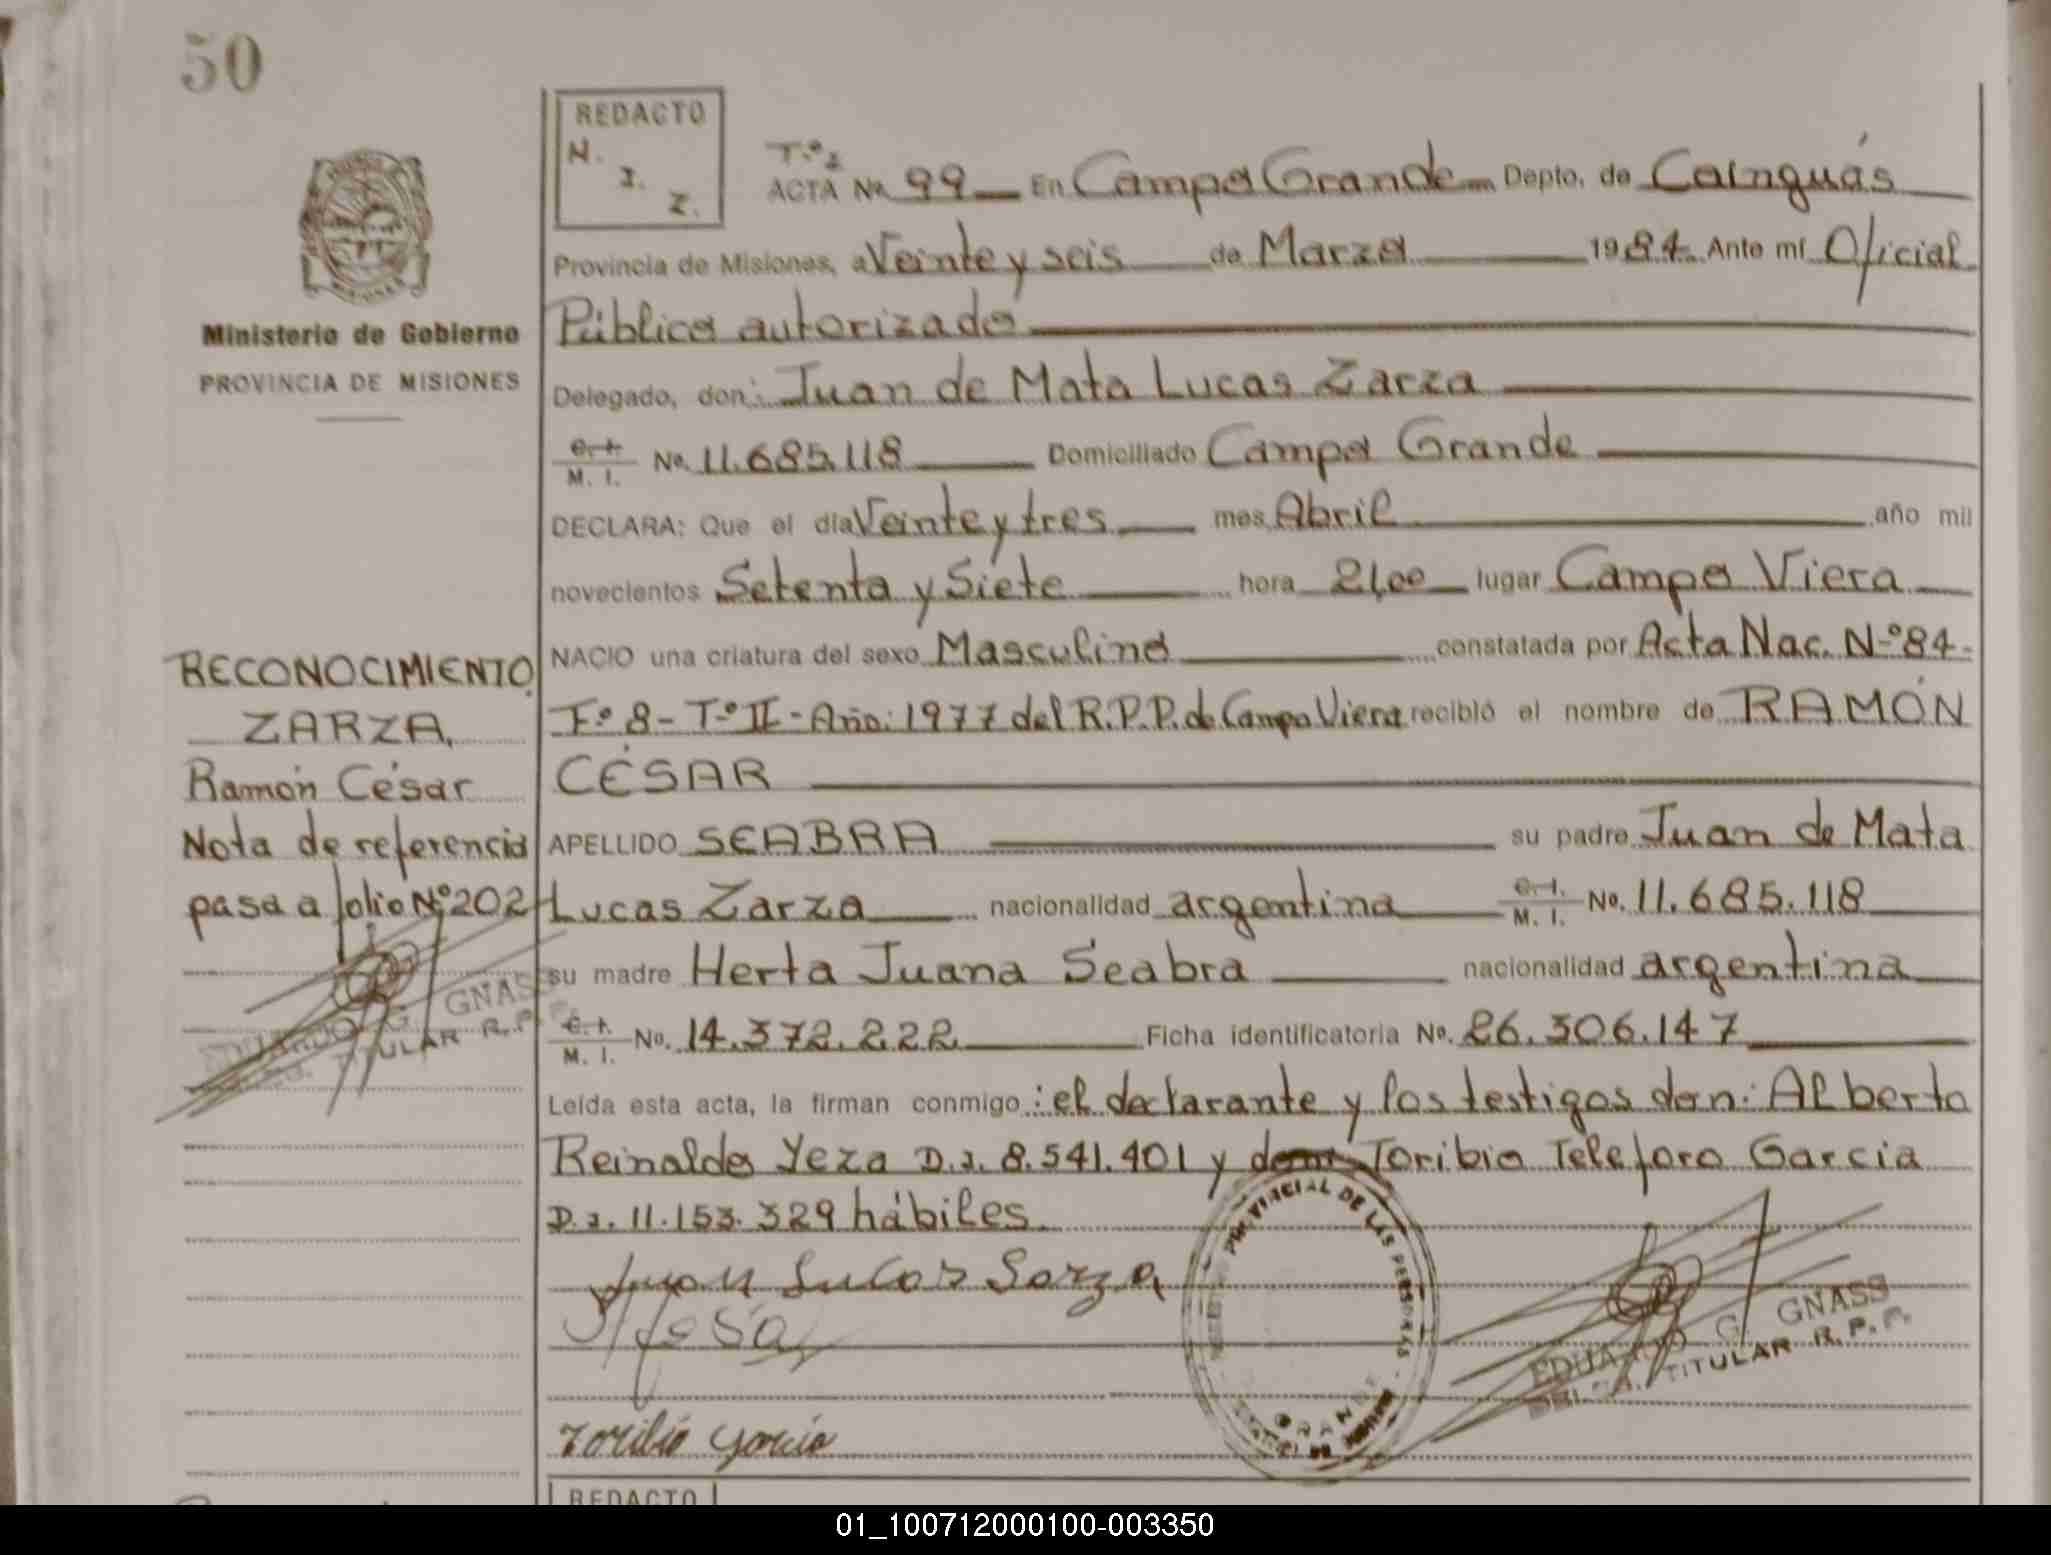 50
REDACTO
N. I. Z.
T.º I
ACTA Nº 99 En Campo Grande Depto. de Cainguás
Provincia de Misiones, a Veinte y seis de Marzo 1984. Ante mí Oficial
Público autorizado
Delegado, don: Juan de Mata Lucas Zarza
C. I.
M. I. No. 11.685.118 Domiciliado Campo Grande
DECLARA: Que el día Veinte y tres mes Abril año mil
novecientos Setenta y Siete hora 21,00 lugar Campo Viera
NACIO una criatura del sexo Masculino constatada por Acta Nac. N.º 84-
F.º 8 - T.º II - Año: 1977 del R.P.P. de Campo Viera recibió el nombre de RAMÓN
CÉSAR
APELLIDO SEABRA su padre Juan de Mata
Lucas Zarza nacionalidad argentina C. I.
M. I. No. 11.685.118
su madre Herta Juana Seabra nacionalidad argentina
C. I.
M. I. No. 14.372.222 Ficha identificatoria No. 26.306.147
Leída esta acta, la firman conmigo: el declarante y los testigos don: Alberto
Reinaldo Yeza D.I. 8.541.401 y don Toribio Teleforo Garcia
D.I. 11.153.329 hábiles.
Juan Lucas Sarza
Toribio Garcia
PROVINCIAL DE LAS PERSONAS
EDUARDO G. GNASS
DELEG. TITULAR R. P. P.
Ministerio de Gobierno
PROVINCIA DE MISIONES
RECONOCIMIENTO
ZARZA,
Ramón César
Nota de referencia
pasa a folio Nº 202
EDUARDO G. GNASS
DELEG. TITULAR R. P.
REDACTO
01_100712000100-003350